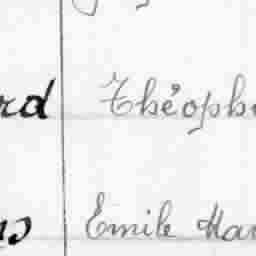 rd Théoph
Emile Ma